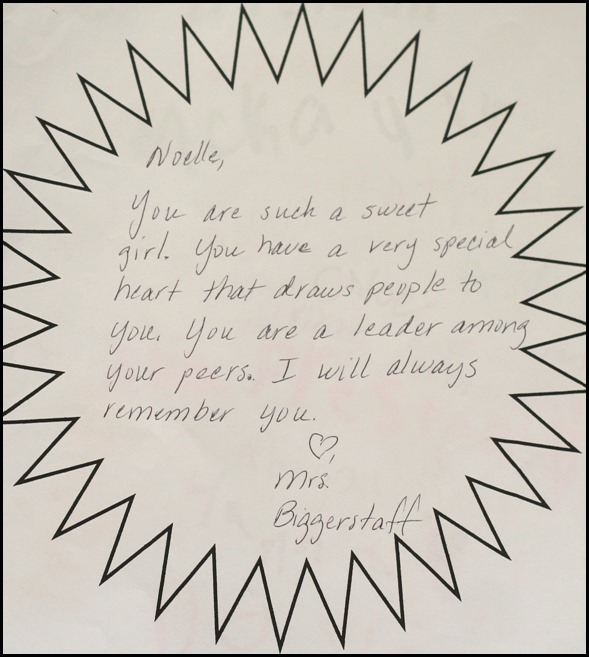 Noelle,
You are such a sweet
girl. You have a very special
heart that draws people to
you. You are a leader among
your peers. I will always
remember you.
♡,
Mrs.
Biggerstaff